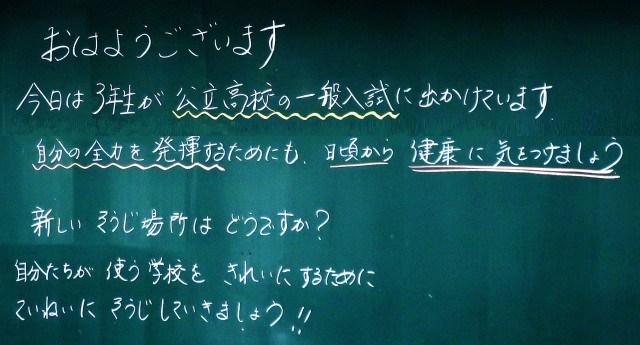 おはようございます
今日は3年生が公立高校の一般入試に出かけています
自分の全力を発揮するためにも、日頃から健康に気をつけましょう
新しいそうじ場所はどうですか?
自分たちが使う学校をきれいにするために
ていねいにそうじしていきましょう!!